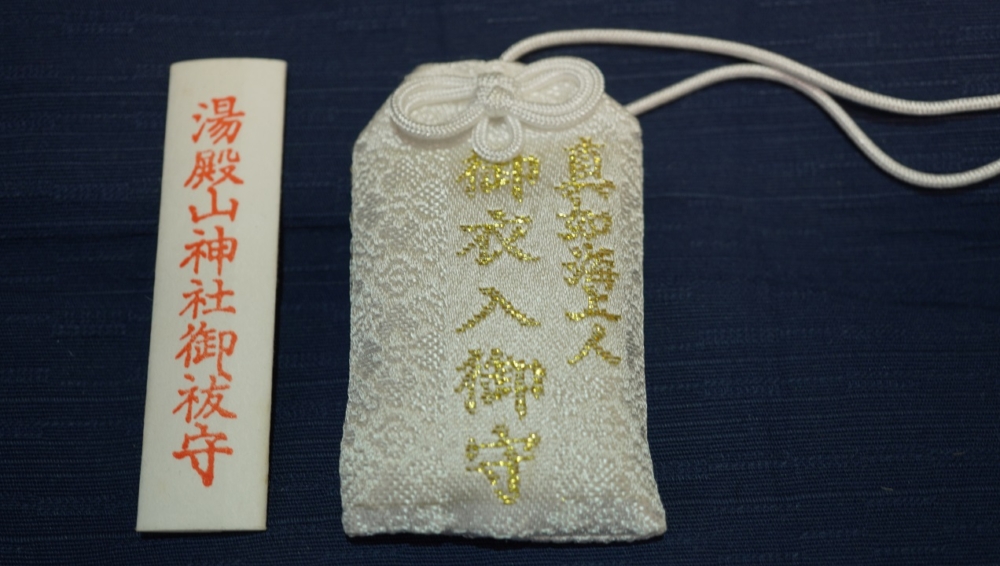 湯殿山神社御祓守
真如海上人
御衣入御守